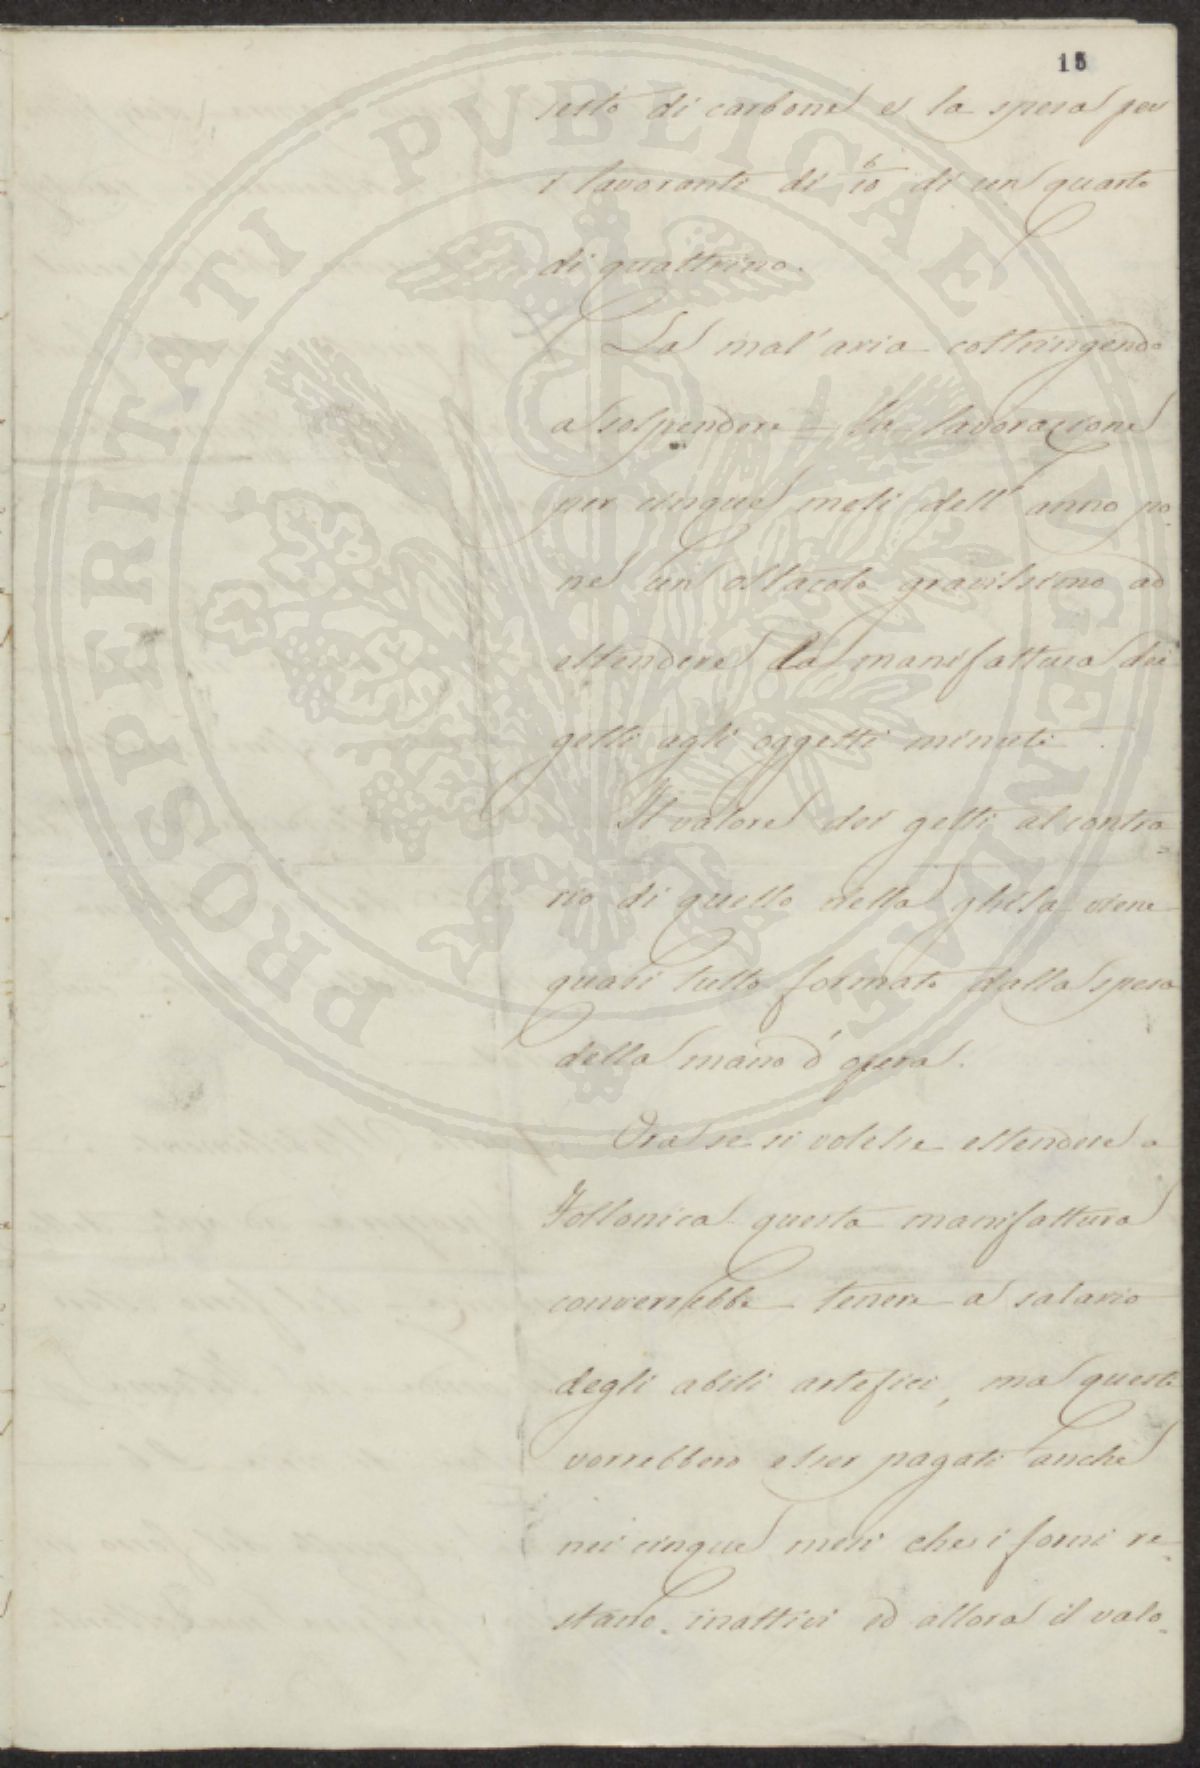 15
sesto di carbone e la spesa per
i lavoranti di 6/10 di un quarto
di quattrino.
La mal'aria costringendo
a sospendere la lavorazione
per cinque mesi dell'anno po-
ne un ostacolo gravissimo ad
estendere la manifattura dei
getti agli oggetti minuti.
Il valore dei getti al contra-
rio di quello della ghisa viene
quasi tutto formato dalla spesa
della mano d'opera.
Ora se si volesse estendere a
Follonica questa manifattura
converrebbe tenere a salario
degli abili artefici, ma questi
vorrebbero esser pagati anche
nei cinque mesi che i forni re-
stano inattivi ed allora il valo-
PROSPERITATI PUBLICAE AUGENDAE